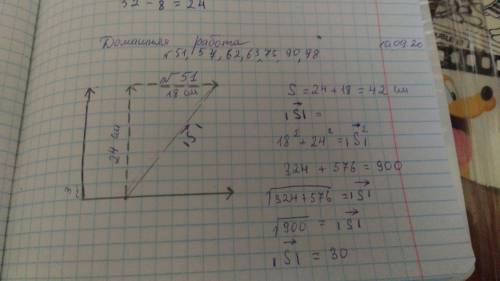 32 - 8 = 24
Домашняя работа 10.09.20
№51, 57, 62, 63, 75, 90, 98
№51
18 см
24 см
S
S = 24 + 18 = 42 см
|S| =
18² + 24² = |S|²
324 + 576 = 900
√324+576 = |S|
√900 = |S|
|S| = 30